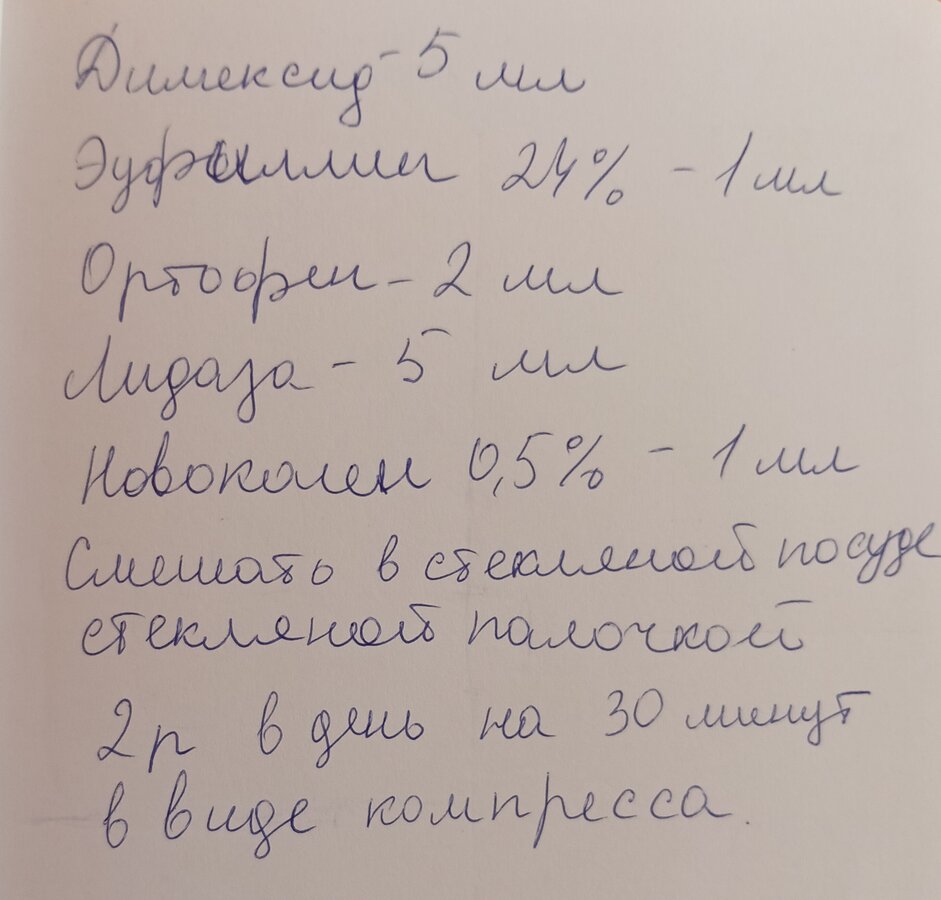 Димексид - 5 мл
Эуфиллин 24% - 1 мл
Ортофен - 2 мл
Лидаза - 5 мл
Новокаен 0,5% - 1 мл
Смешать в стекляной посуде
стекляной палочкой
2 р в день на 30 минут
в виде компресса.